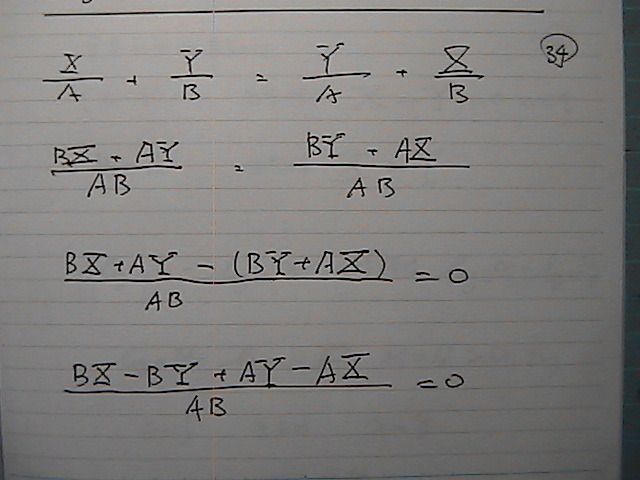 X/A + Y/B = Y/A + X/B 34
BX + AY / AB = BY + AX / AB
BX + AY - (BY + AX) / AB = 0
BX - BY + AY - AX / AB = 0